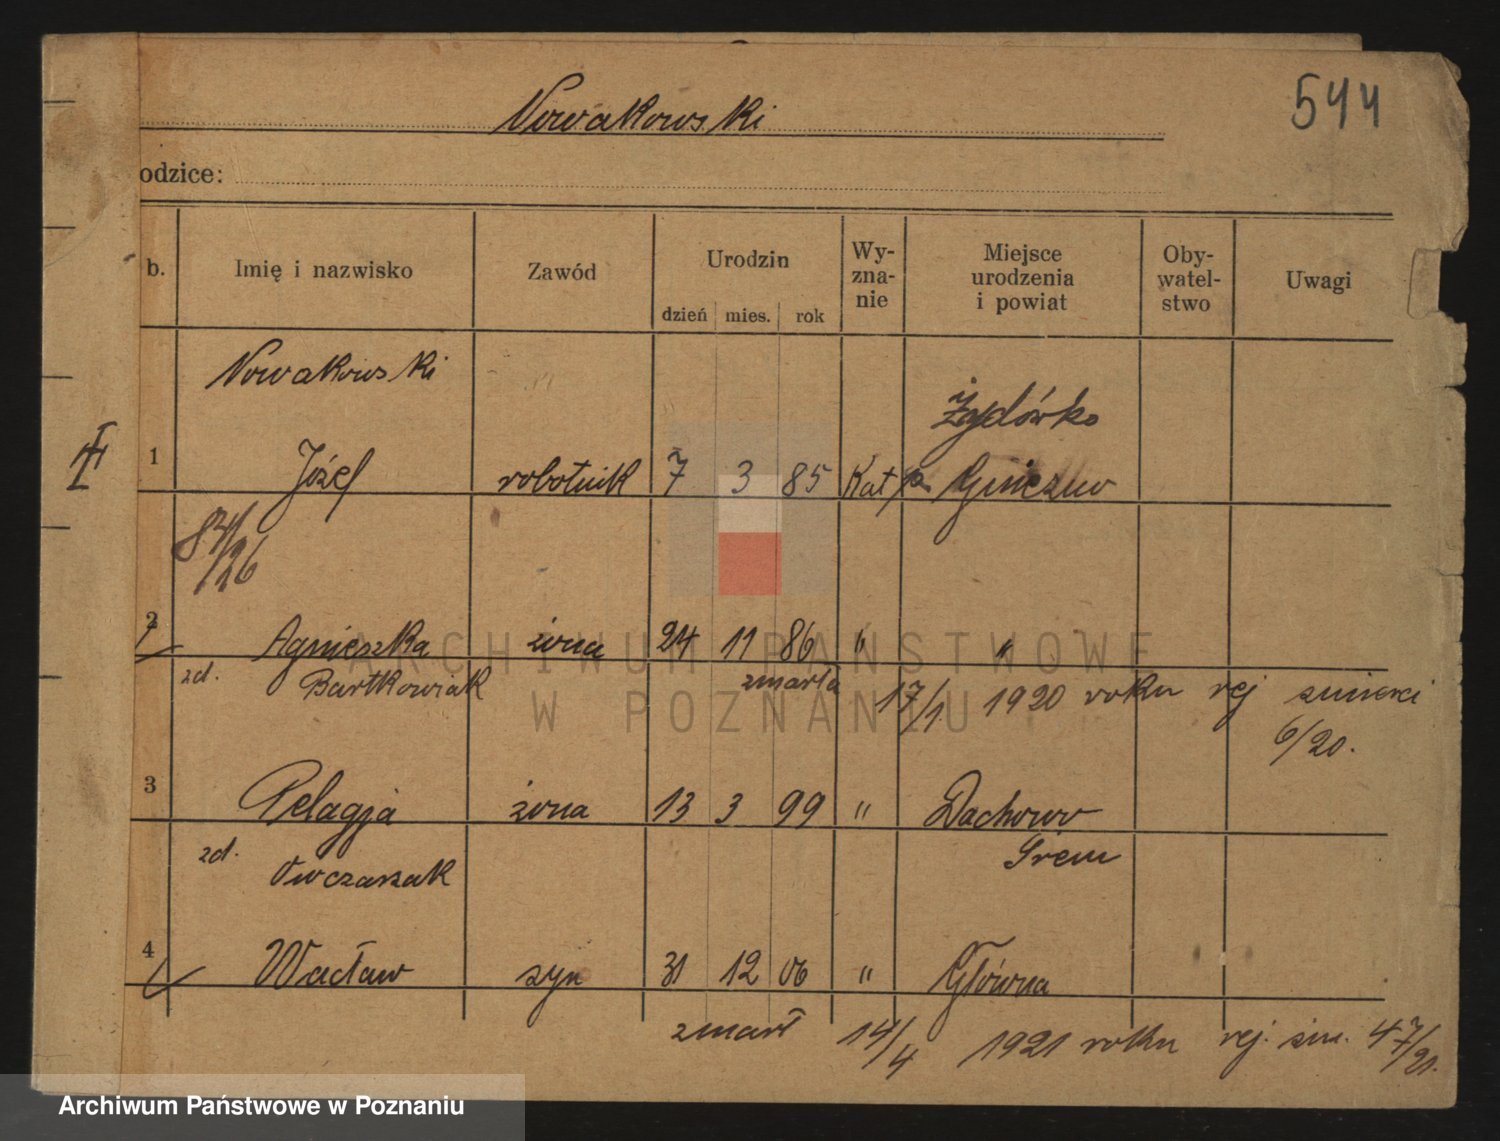 544
Nowakowski
odzice:
b. Imię i nazwisko Zawód Urodzin Wy-zna-nie Miejsce urodzenia i powiat Oby-watel-stwo Uwagi
dzień mies. rok
Nowakowski
Żydówko
1 Józef robotnik 7 3 85 Kat p. Gniezno
84/26
2 Agnieszka żona 24 11 86 " "
zd. Bartkowiak zmarła 17/1 1920 roku rej śmierci
6/20.
3 Pelagja żona 13 3 99 " Dachowo
Śrem
zd. Owczarzak
4 Wacław syn 31 12 06 " Główna
zmarł 14/4 1921 roku rej. śm. 47/21.
ARCHIWUM PAŃSTWOWE
W POZNANIU
Archiwum Państwowe w Poznaniu